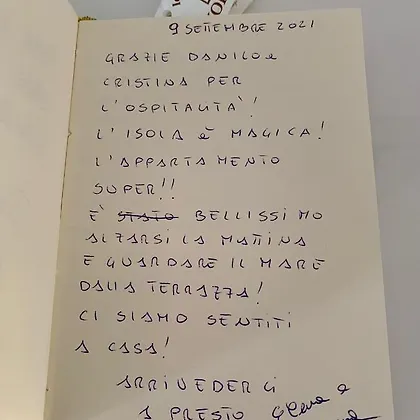 9 SETTEMBRE 2021
GRAZIE DANILO e
CRISTINA PER
L'OSPITALITÀ!
L'ISOLA È MAGICA!
L'APPARTAMENTO
SUPER!!
È STATO BELLISSIMO
ALZARSI LA MATTINA
E GUARDARE IL MARE
DALLA TERRAZZA!
CI SIAMO SENTITI
A CASA!
ARRIVEDERCI
A PRESTO